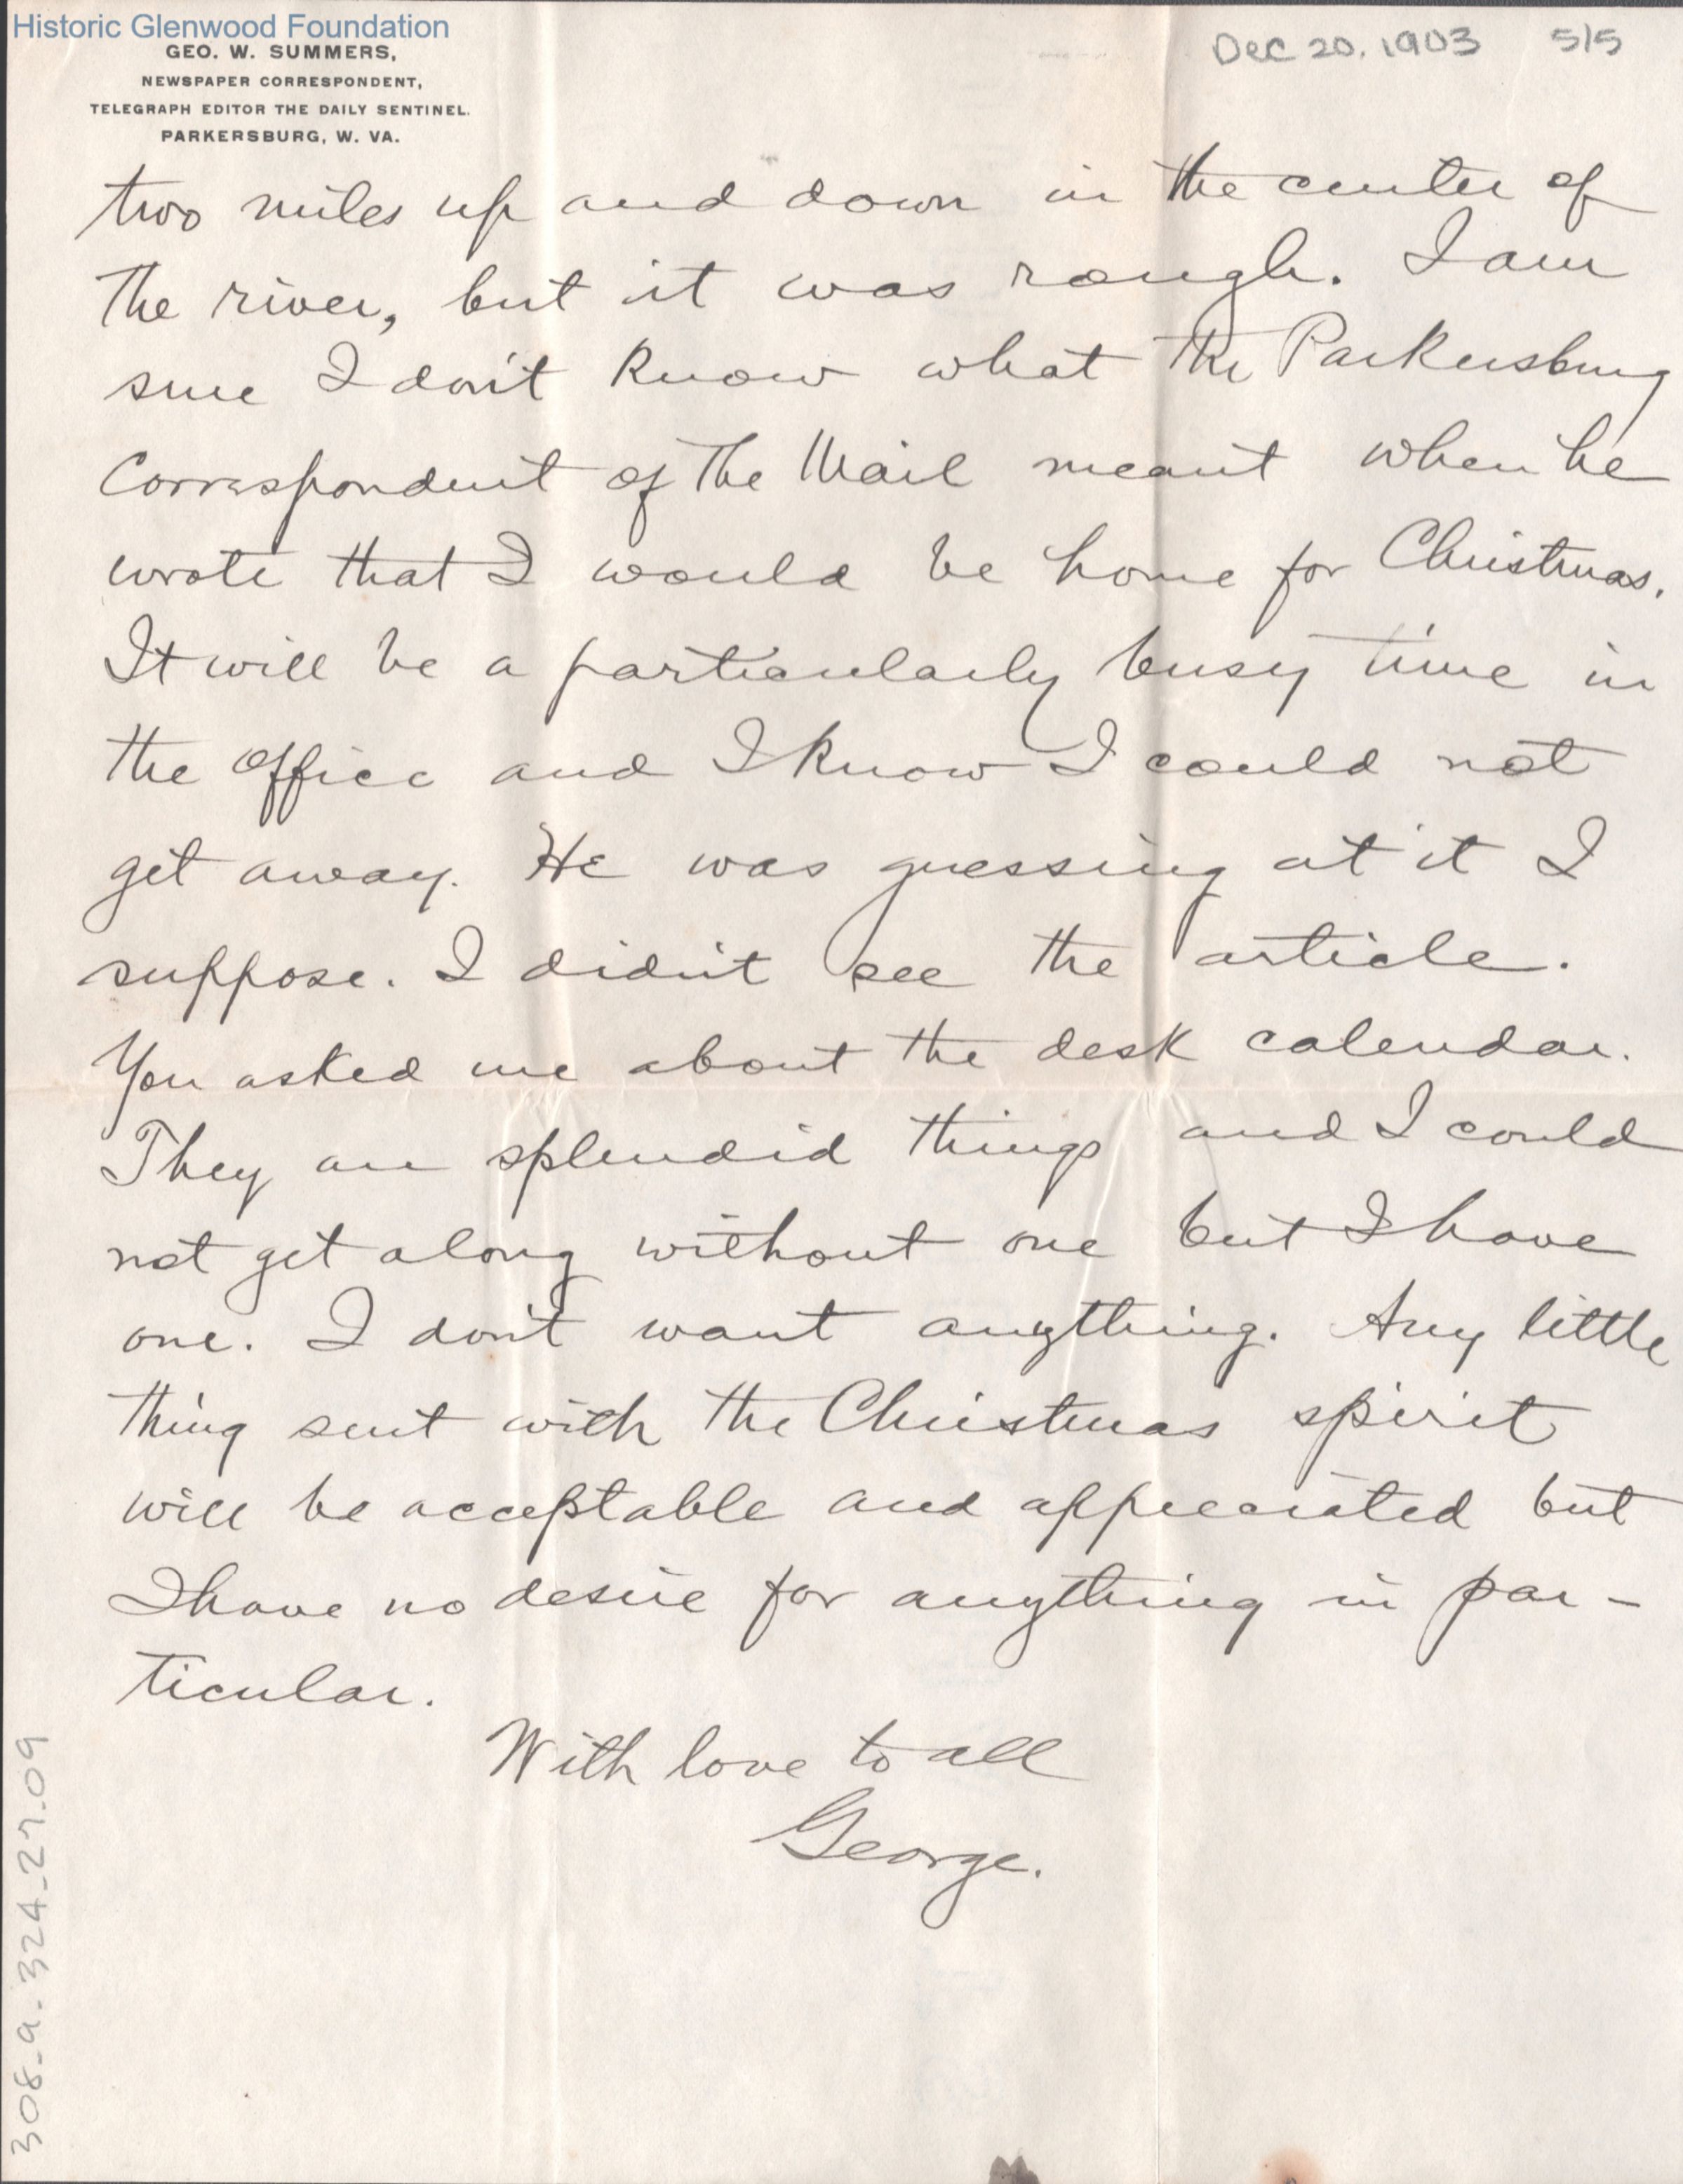 Historic Glenwood Foundation
GEO. W. SUMMERS,
NEWSPAPER CORRESPONDENT,
TELEGRAPH EDITOR THE DAILY SENTINEL.
PARKERSBURG, W. VA.
Dec 20, 1903 5/5
two miles up and down in the center of
the river, but it was rough. I am
sure I don't know what the Parkersburg
Correspondent of the Mail meant when he
wrote that I would be home for Christmas.
It will be a particularly busy time in
the office and I know I could not
get away. He was guessing at it I
suppose. I didn't see the article.
You asked me about the desk calendar.
They are splendid things and I could
not get along without one but I have
one. I don't want anything. Any little
thing sent with the Christmas spirit
will be acceptable and appreciated but
I have no desire for anything in par-
ticular.
With love to all
George.
308_a_324_27_09